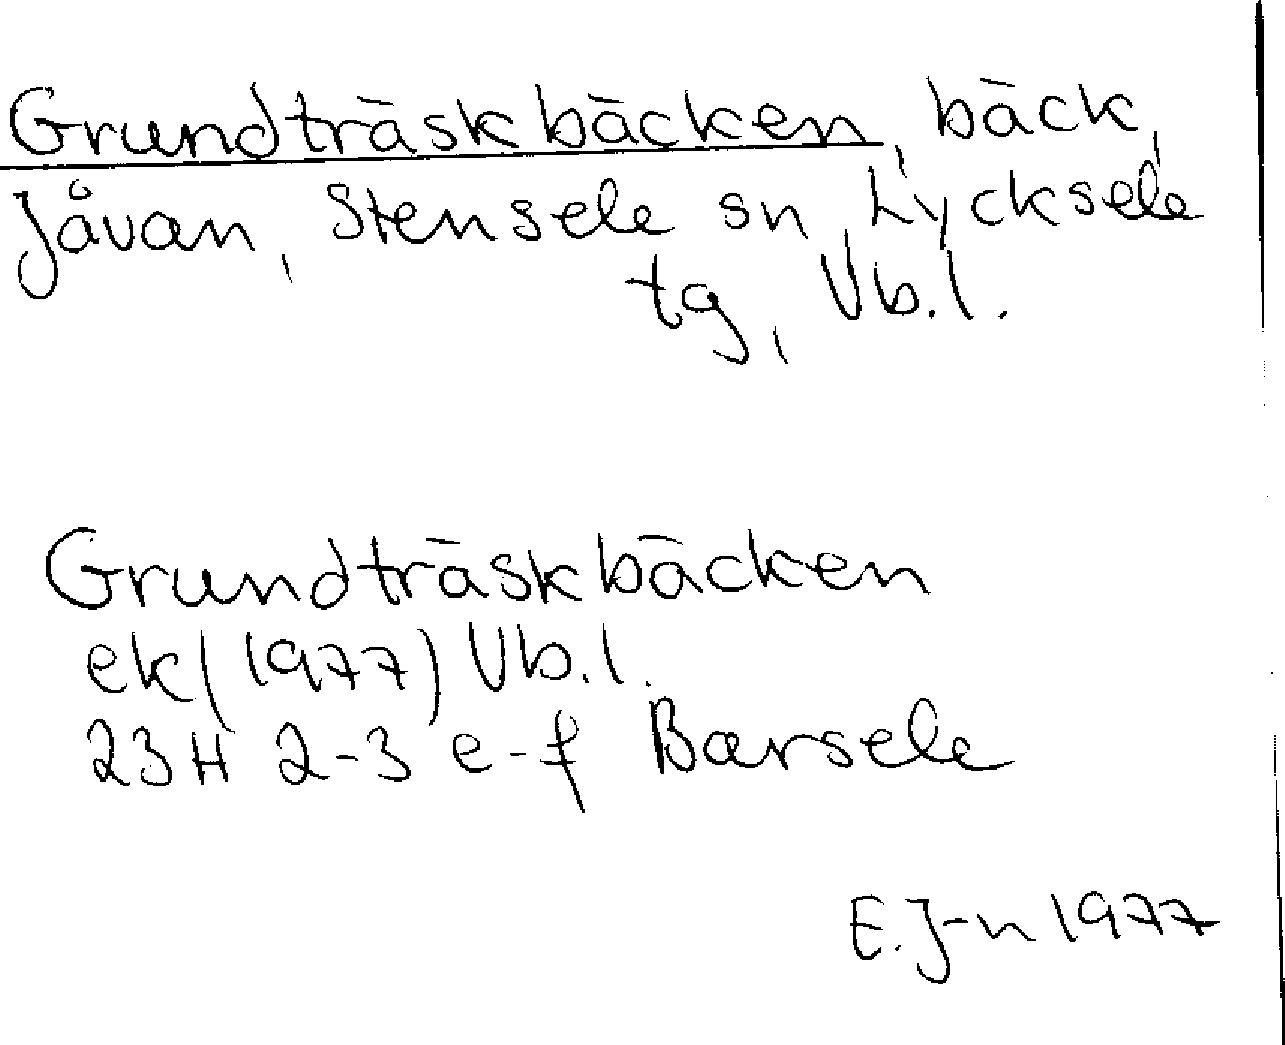 Grundträskbäcken, bäck,
Jåvan, Stensele sn, Lycksele
tg, Vb.l.
Grundträskbäcken
ek (1977) Vb.l.
23H 2-3 e-f Barsele
E.J-n 1977